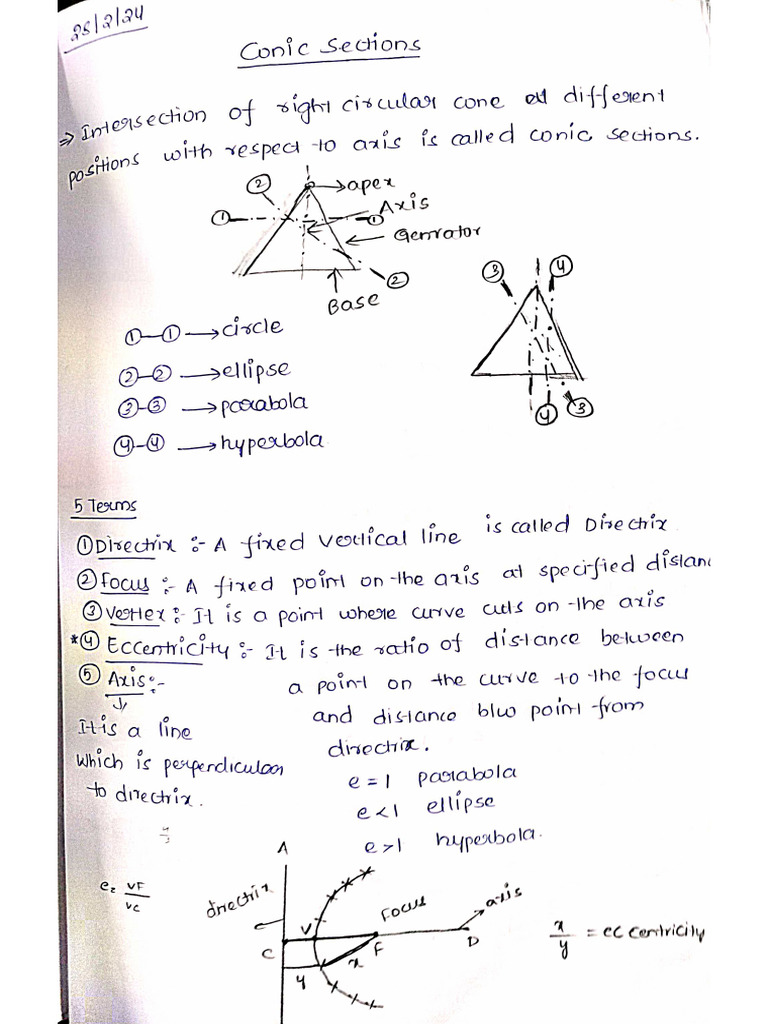 25/2/24
Conic Sections
⇒ Intersection of right circular cone at different
positions with respect to axis is called conic sections.
② → apex
① Axis
①
← Genrator
②
Base
③ ④
①-① → circle
②-② → ellipse
③-③ → parabola
④-④ → hyperbola
④ ③
5 Terms
① Directrix :- A fixed vertical line is called Directrix
② Focus :- A fixed point on the axis at specified distanc
③ Vertex :- It is a point where curve cuts on the axis
*④ Eccentricity :- It is the ratio of distance between
a point on the curve to the focus
and distance b/w point from
directrix.
⑤ Axis :-
↓
It is a line
which is perpendicular
to directrix.
e = 1 parabola
e < 1 ellipse
e > 1 hyperbola.
A
e = VF/VC
directrix
Focus
axis
V
C
F
D
x
y
x/y = eccentricity